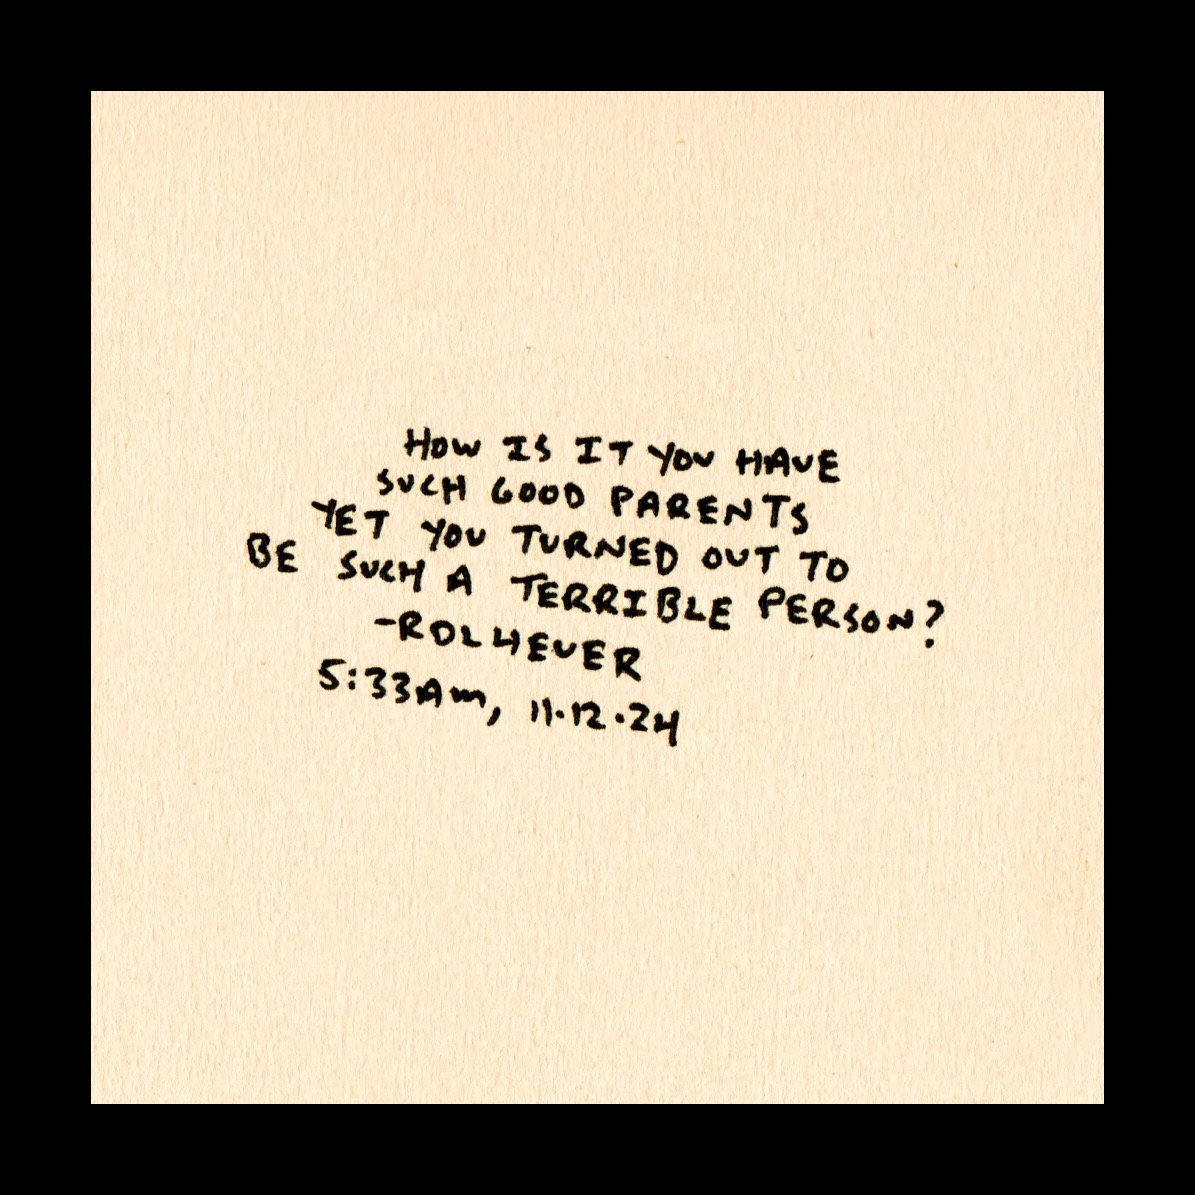 HOW IS IT YOU HAVE
SUCH GOOD PARENTS
YET YOU TURNED OUT TO
BE SUCH A TERRIBLE PERSON?
-ROL4EVER
5:33AM, 11.12.24